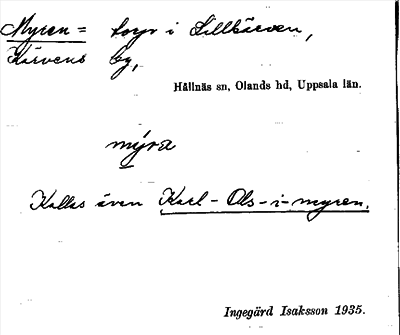 Myren = torp i Lillkärven,
Kärvens by,
Hållnäs sn, Olands hd, Uppsala län.
mýra
Kallas även Karl-Ols-i-myren.
Ingegärd Isaksson 1935.